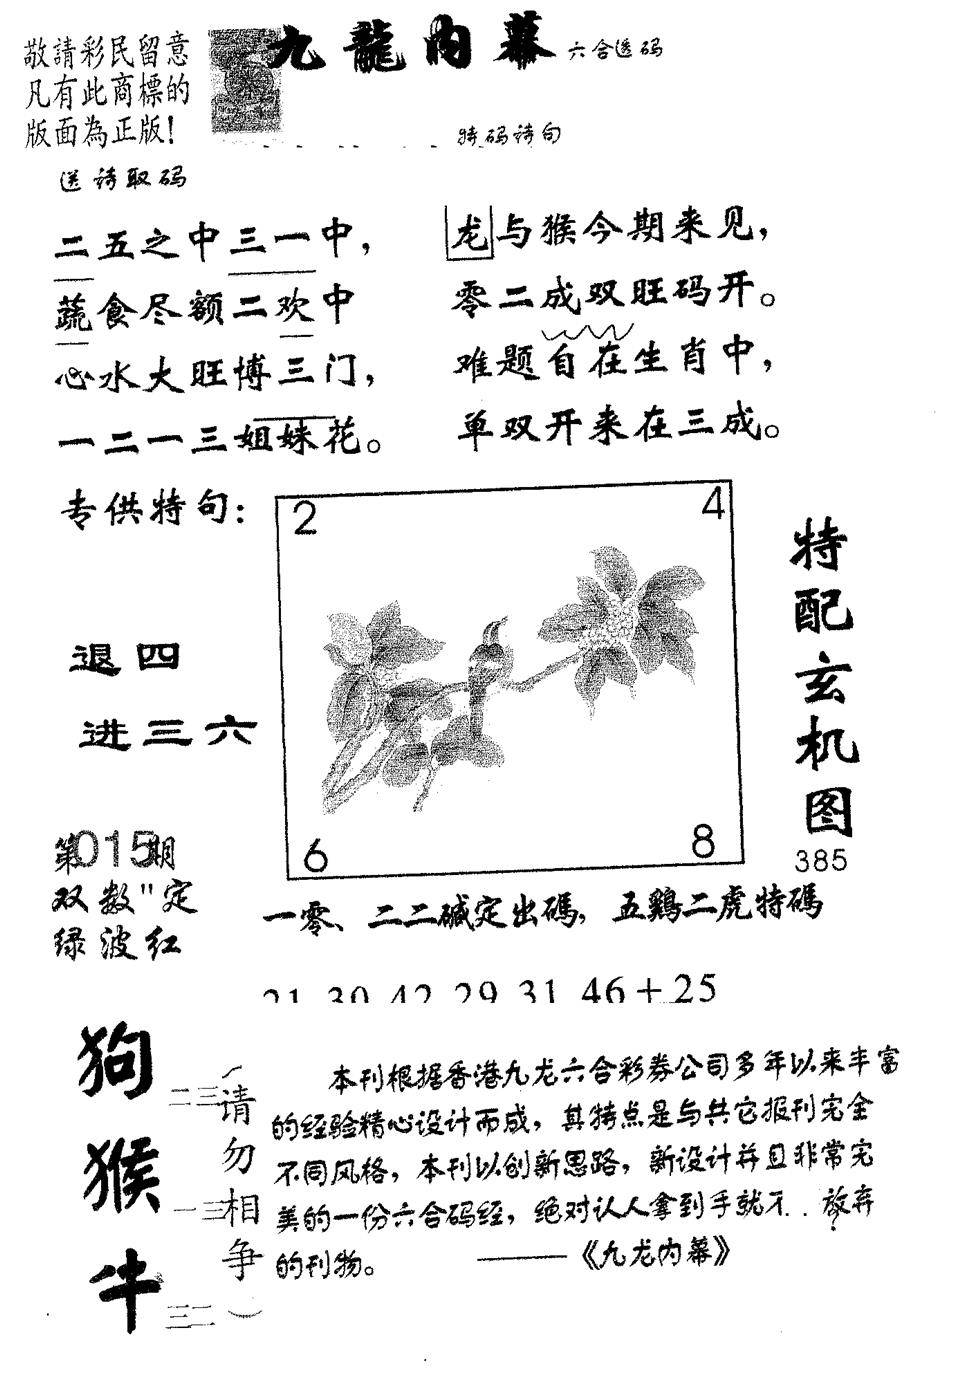 敬請彩民留意
凡有此商標的
版面為正版!
九龍内幕 六合透码
特码诗句
送诗取码
二五之中三一中，
蔬食尽额二欢中
心水大旺博三门，
一二一三姐妹花。
龙与猴今期来见，
零二成双旺码开。
难题自在生肖中，
单双开来在三成。
专供特句：
退四
进三六
2
4
6
8
特配玄机图
385
第015期
双数"定
绿波红
一零、二二碱定出碼，五鷄二虎特碼
21 30 42 29 31 46+25
狗
二三
猴
一三
牛
三二
（请勿相争）
本刊根据香港九龙六合彩券公司多年以来丰富
的经验精心设计而成，其特点是与其它报刊完全
不同风格，本刊以创新思路，新设计并且非常完
美的一份六合码经，绝对认人拿到手就不 放弃
的刊物。 ——《九龙内幕》